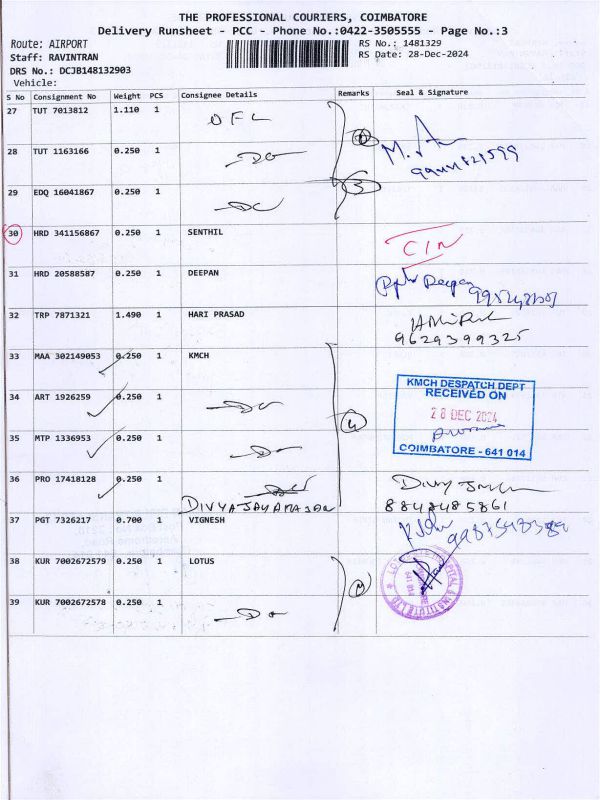 THE PROFESSIONAL COURIERS, COIMBATORE
Delivery Runsheet - PCC - Phone No.:0422-3505555 - Page No.:3
Route: AIRPORT RS No.: 1481329
Staff: RAVINTRAN RS Date: 28-Dec-2024
DRS No.: DCJB148132903
Vehicle:
S No Consignment No Weight PCS Consignee Details Remarks Seal & Signature
27 TUT 7013812 1.110 1 DFL
28 TUT 1163166 0.250 1 DO
29 EDQ 16041867 0.250 1 3
30 HRD 341156867 0.250 1 SENTHIL CIN
31 HRD 20588587 0.250 1 DEEPAN Deepan
32 TRP 7871321 1.490 1 HARI PRASAD
9629399325
33 MAA 302149053 0.250 1 KMCH
KMCH DESPATCH DEPT
RECEIVED ON
28 DEC 2024
COIMBATORE - 641 014
34 ART 1926259 0.250 1 4
35 MTP 1336953 0.250 1
36 PRO 17418128 0.250 1
DIVYAJAYARAJAN 8848485861
37 PGT 7326217 0.700 1 VIGNESH
38 KUR 7002672579 0.250 1 LOTUS
39 KUR 7002672578 0.250 1